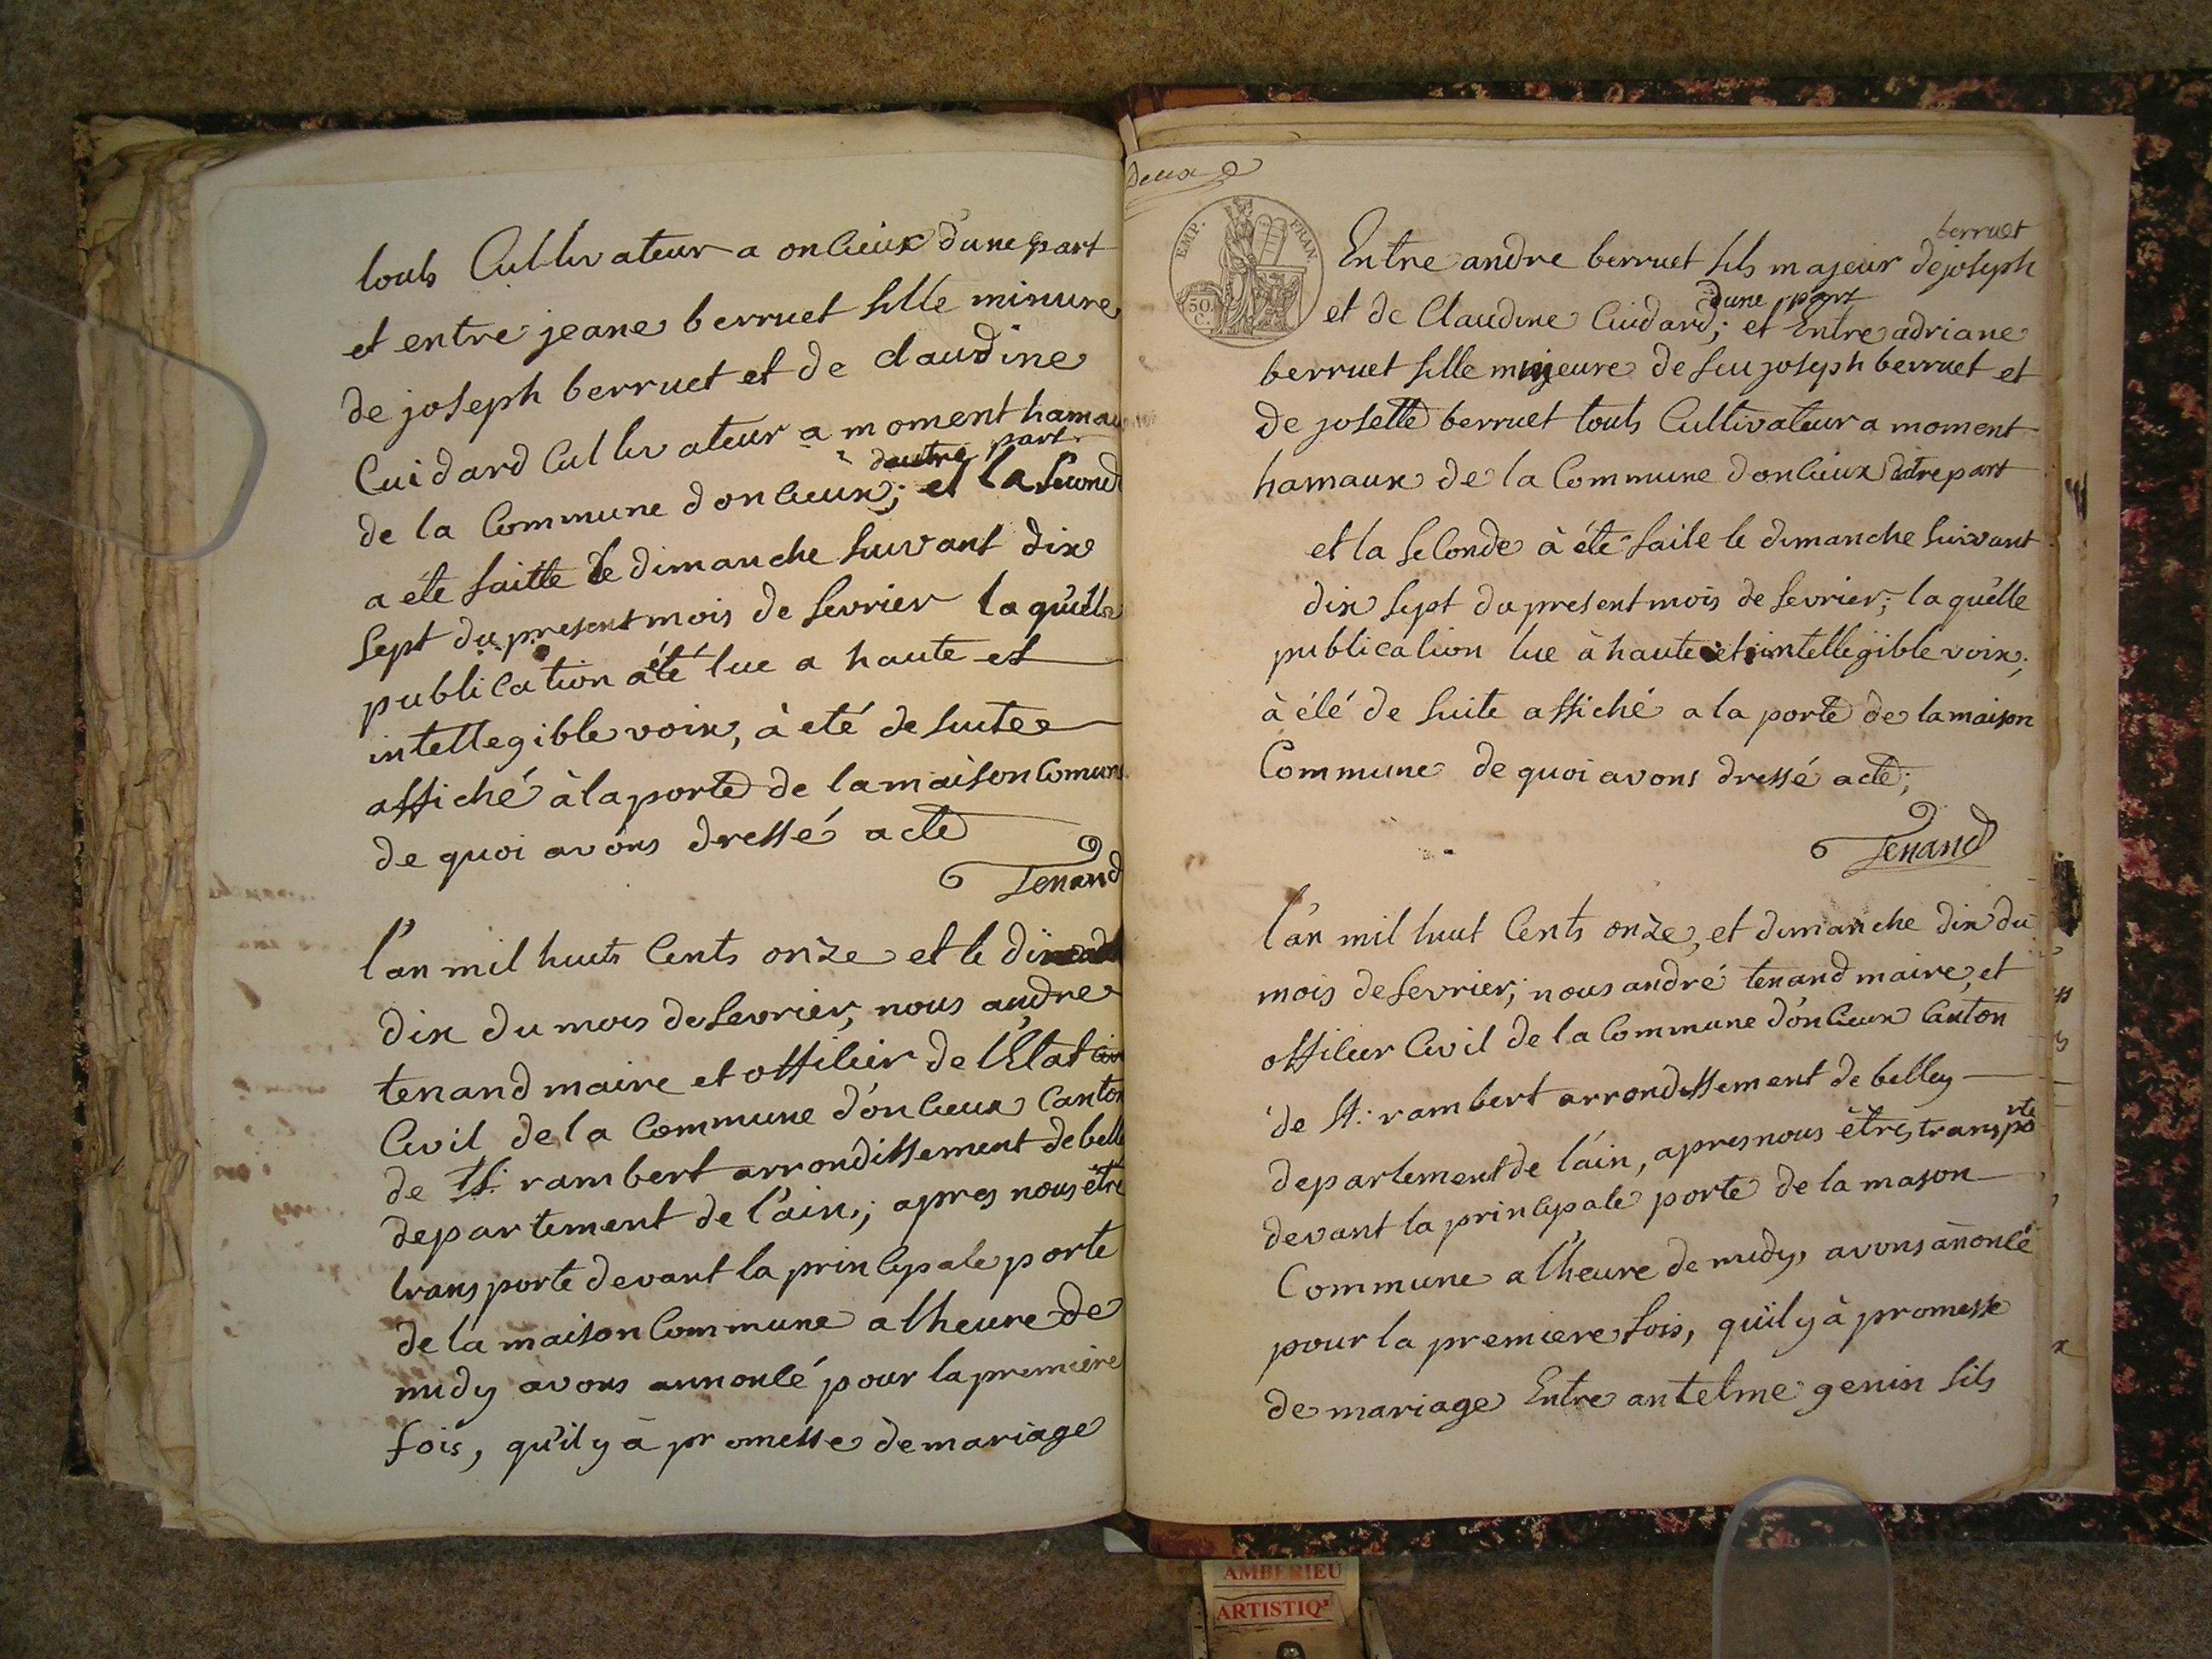 touts Cultivateur a onlieux d'une part
et entre jeane berruet fille minure
de joseph berruet et de claudine
Cuidard Cultivateur a moment hamau
dautre part
de la Commune donlieux; et la Second
a éte faitte le dimanche suivant dix
sept du present mois de fevrier la quelle
publication a été lue a haute et
intellegible voix, à eté de suitee
affiché à la porte de la maison Comune
de quoi avons dressé acte
Tenand
l'an mil huits Cents onze et le
dix du mois de fevrier, nous andre
tenand maire et officier de l'Etat
Civil de la Commune d'onlieux Canton
de St: rambert arrondissement de belle
departement de l'ain; apres nous être
transporte devant la principale porte
de la maison Commune a lheure de
midy avons annoncé pour la premiere
fois, qu'il y à promesse de mariage
Deux
EMP: FRAN
50. C.
berruet
Entre andre berruet fils majeur de joseph
dune part
et de Claudine Cuidard; et Entre adriane
berruet fille mineure de feu joseph berruet et
de josette berruet touts Cultivateur a moment
hamaux de la Commune donlieux dotre part
et la seconde à éte faite le dimanche suivant
dix sept du present mois de fevrier; la quelle
publication lue à haute et intellegible voix;
à été de suite affiché a la porte de la maison
Commune de quoi avons dressé acte;
Tenand
l'an mil huit Cents onze, et dimanche dix du
mois de fevrier; nous andré tenand maire, et
officier Civil de la Commune d'onlieux Canton
de St: rambert arrondissement de belley
departement de l'ain, apres nous êtres transporte
devant la principale porte de la mason
Commune a l'heure de midy, avons añoncé
pour la premiere fois, qu'il y à promesse
de mariage Entre antelme genin fils
AMBERIEU
ARTISTIQ